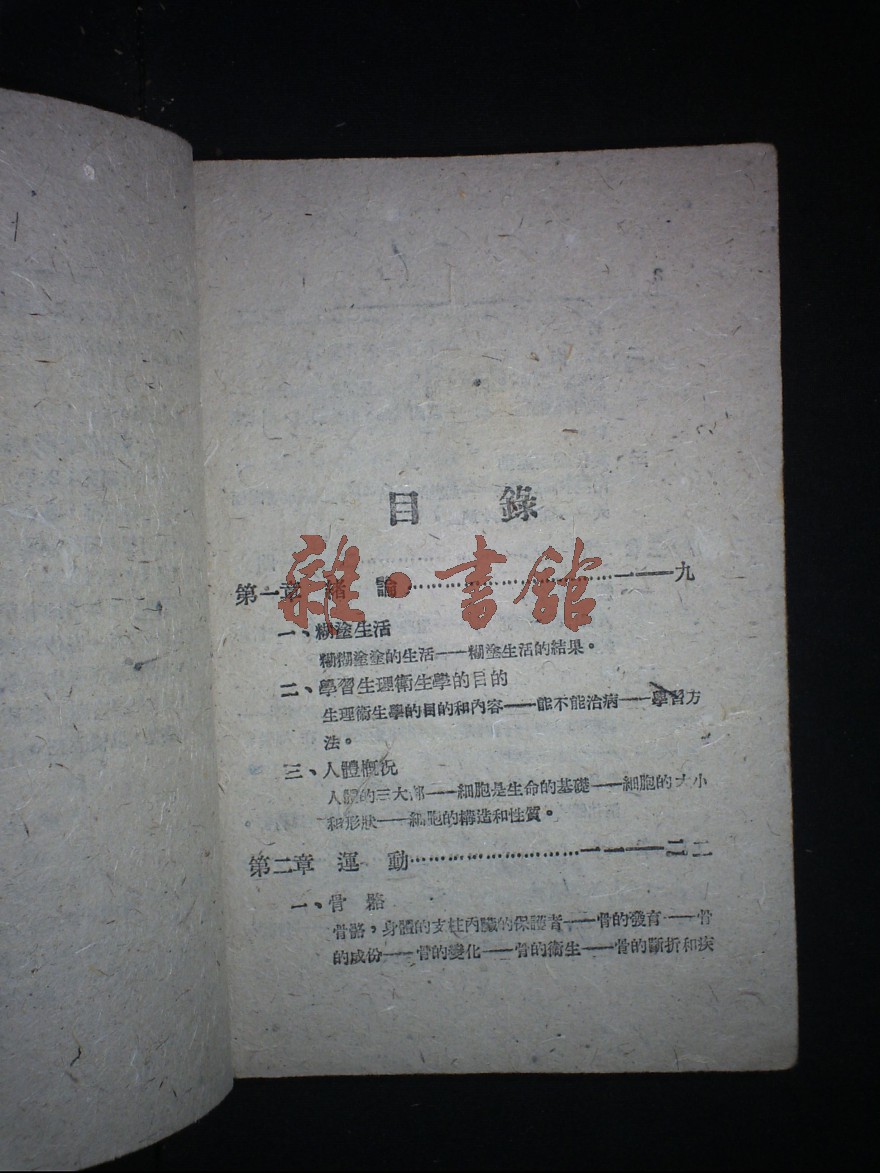 目錄
第一章 緒論…………………………一——九
一、糊塗生活
糊糊塗塗的生活——糊塗生活的結果。
二、學習生理衛生學的目的
生理衛生學的目的和內容——能不能治病——學習方
法。
三、人體概况
人體的三大部——細胞是生命的基礎——細胞的大小
和形狀——細胞的構造和性質。
第二章 運動…………………………一一——二二
一、骨骼
骨骼，身體的支柱內臟的保護者——骨的發育——骨
的成份——骨的變化——骨的衛生——骨的斷折和疾
雜·書館